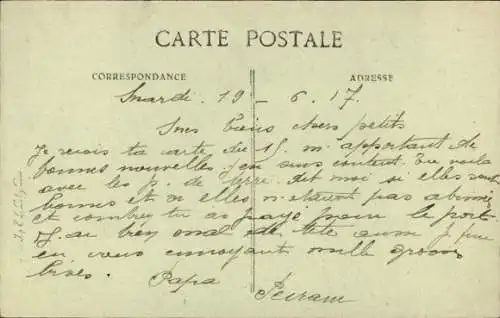 CARTE POSTALE
CORRESPONDANCE
ADRESSE
mardi . 19 - 6 . 17.
chers petits
Je reçois ta carte du 15. m'apportant de
bonnes nouvelles j'en suis content. Te voila
avec les p. de dit moi si elles sont
bonnes et si elles n'étaient pas
et combien tu as payé pour le port
J. ai bien mal de tête aussi je
en vous envoyant mille grosses
bises.
Papa